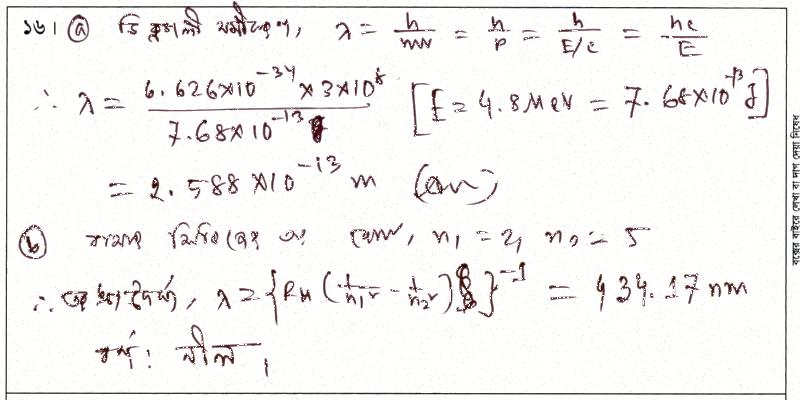 ১৬। (a) ডি ব্রগলী সমীকরণ, λ = h/mv = h/p = h/E/c = hc/E
∴ λ = 6.626×10^-34 × 3×10^8 / 7.68×10^-13 [E = 4.8 MeV = 7.68×10^-13 J]
= 2.588 ×10^-13 m (Ans)
(b) বামার সিরিজের n₁ = 2, n₂ = 5
∴ তরঙ্গদৈর্ঘ্য, λ = {RH (1/n₁² - 1/n₂²)}^-1 = 434.17 nm
বর্ণ: নীল।
বক্সের বাইরে লেখা বা দাগ দেয়া নিষেধ